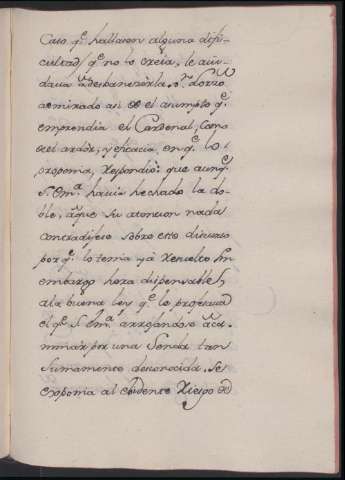 Caso q.e hallasen alguna difi-
cultad/ q.e no lo creia, le aiu-
daua a desbaneserla.
admirado asi de el asumpto q.e
emprendia el Cardenal, como
de el ardor, y eficacia, en q.e lo
proponia, Respondio: que aunq.e
S. Em.a havia hechado la do-
ble, a que su atencion nada
contradijese sobre esto discurso
porq.e lo tenia yá resuelto Sin
embargo hera dispensable,
a la buena ley q.e le profesaua
el q.e S. Em.a arrojandose a ca-
minar por una Senda tan
sumamente desconocida. se
exponia al ebidente Riesgo de